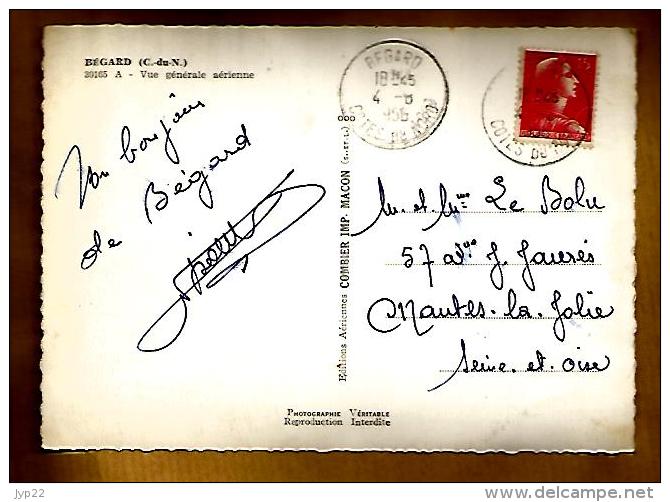 BÉGARD (C.-du-N.)
39165 A - Vue générale aérienne
Un bonjour
de Bégard
Editions Aériennes COMBIER IMP. MACON
BEGARD
18H45
4 -8
956
COTES DU NORD
15
COTES DU
M. et Mme Le Bolu
57 av. J. Jaurès
Mantes-la-Jolie
Seine-et-Oise
PHOTOGRAPHIE VÉRITABLE
Reproduction Interdite
jyp22
www.delcampe.net